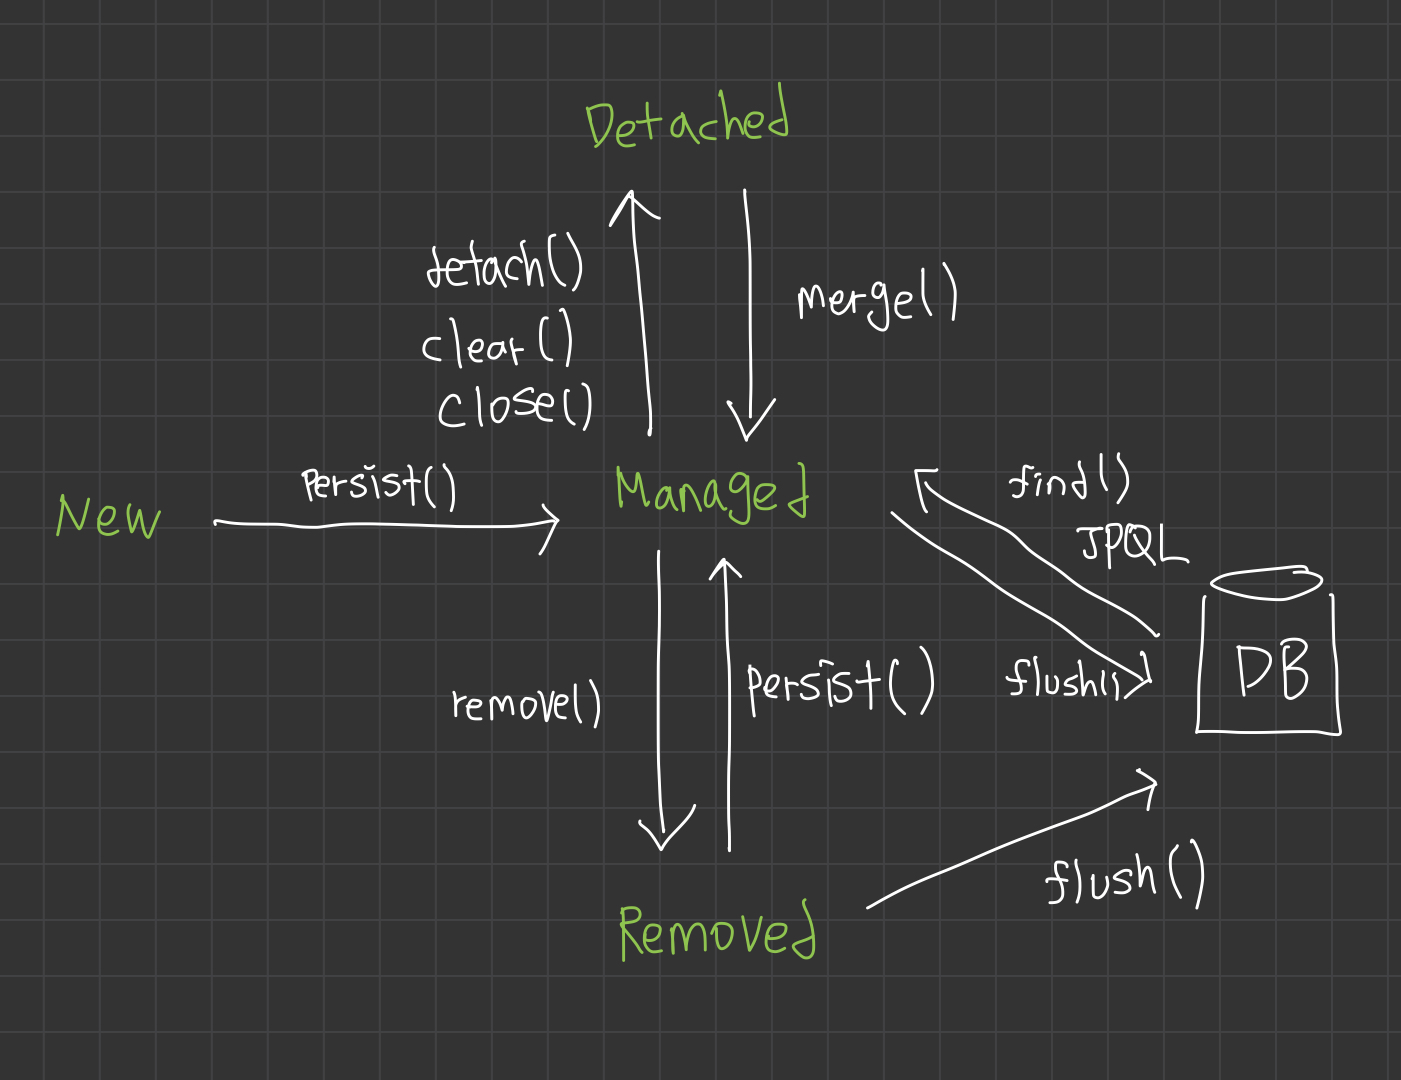 Detached
detach()
clear()
close()
merge()
New
Persist()
Managed
find()
JPQL
flush()
DB
remove()
Persist()
Removed
flush()